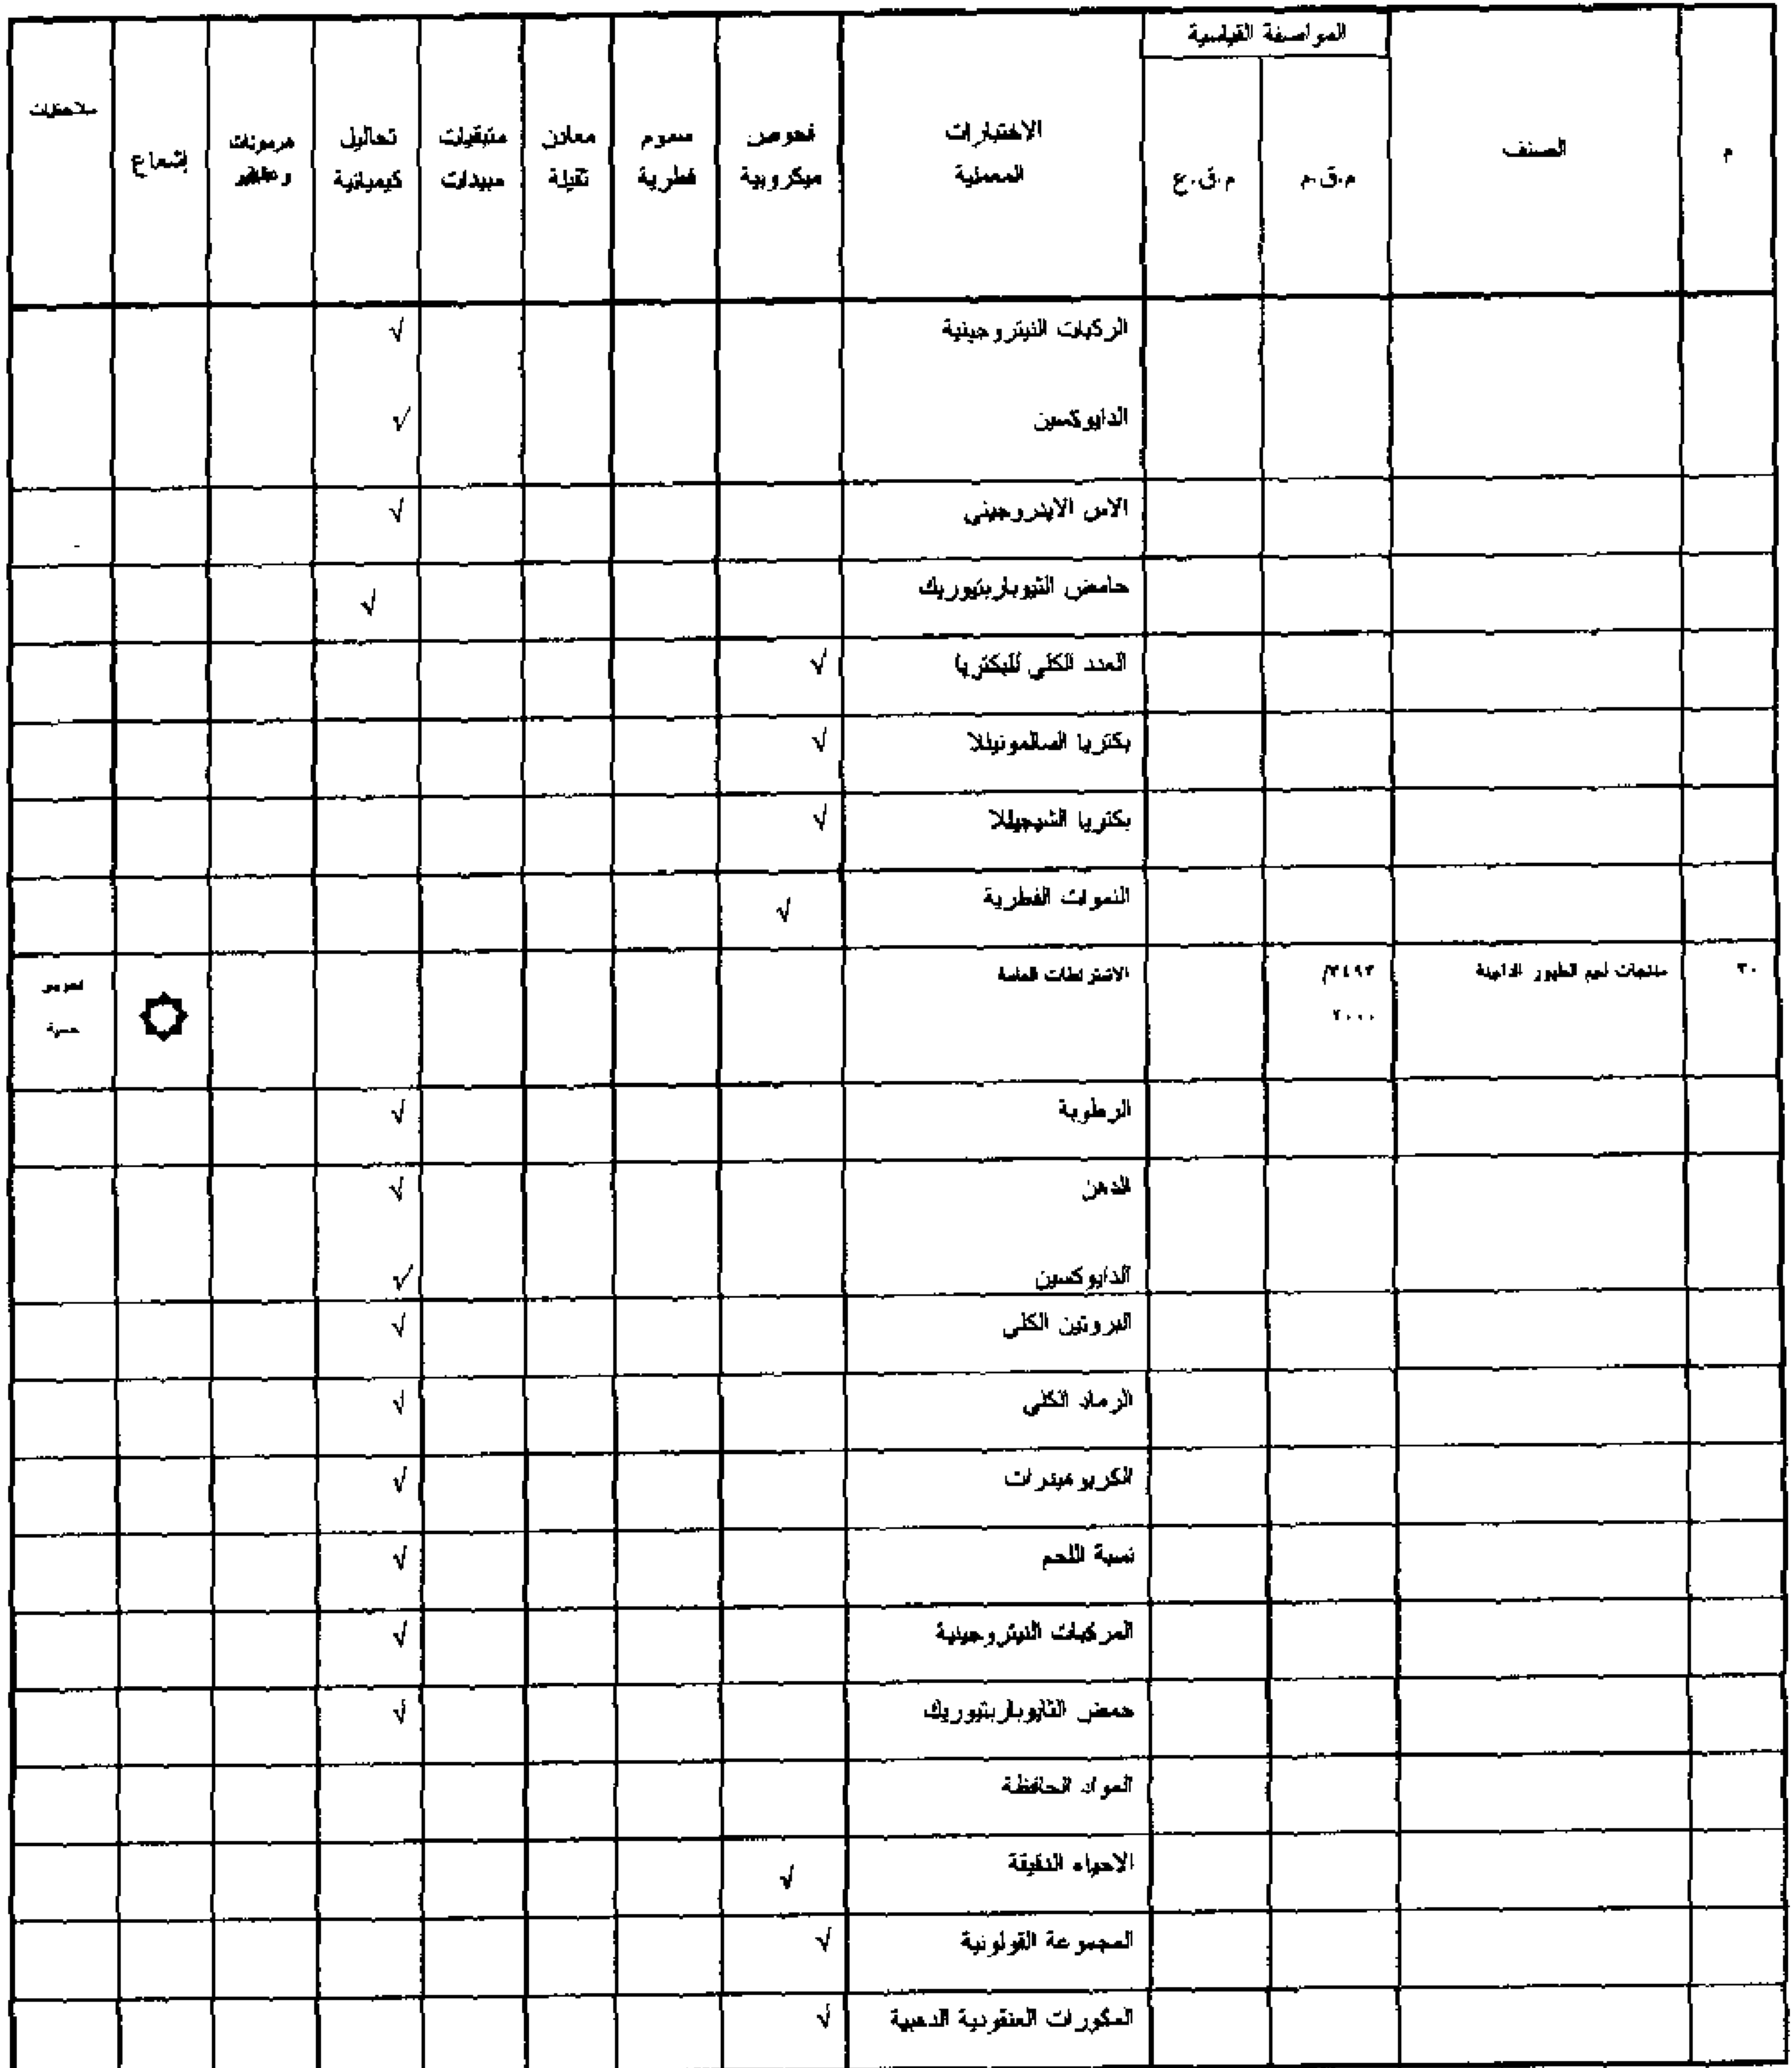 م	الصنف	المواصفة القياسية	الاختبارات المعملية	فحوص ميكروبية	سموم فطرية	معادن ثقيلة	متبقيات مبيدات	تحاليل كيميائية	هرمونات وعقاقير	إشعاع	ملاحظات
م.ق.م	م.ق.ع
الركبات النيتروجينية	√
الدايوكسين	√
الاس الايدروجينى	√
حامض الثيوباربتيوريك	√
العدد الكلى للبكتريا	√
بكتريا السالمونيللا	√
بكتريا الشيجيللا	√
النموات الفطرية	√
٣٠	منتجات لحم الطيور الداجنة	٣٤٩٣/	الاشتراطات العامة	فحوص
٢٠٠٠	حسية
الرطوبة	√
الدهن	√
الدايوكسين	√
البروتين الكلى	√
الرماد الكلى	√
الكربوهيدرات	√
نسبة اللحم	√
المركبات النيتروجينية	√
حمض الثايوباربتيوريك	√
المواد الحافظة
الاحياء الدقيقة	√
المجموعة القولونية	√
المكورات العنقودية الذهبية	√